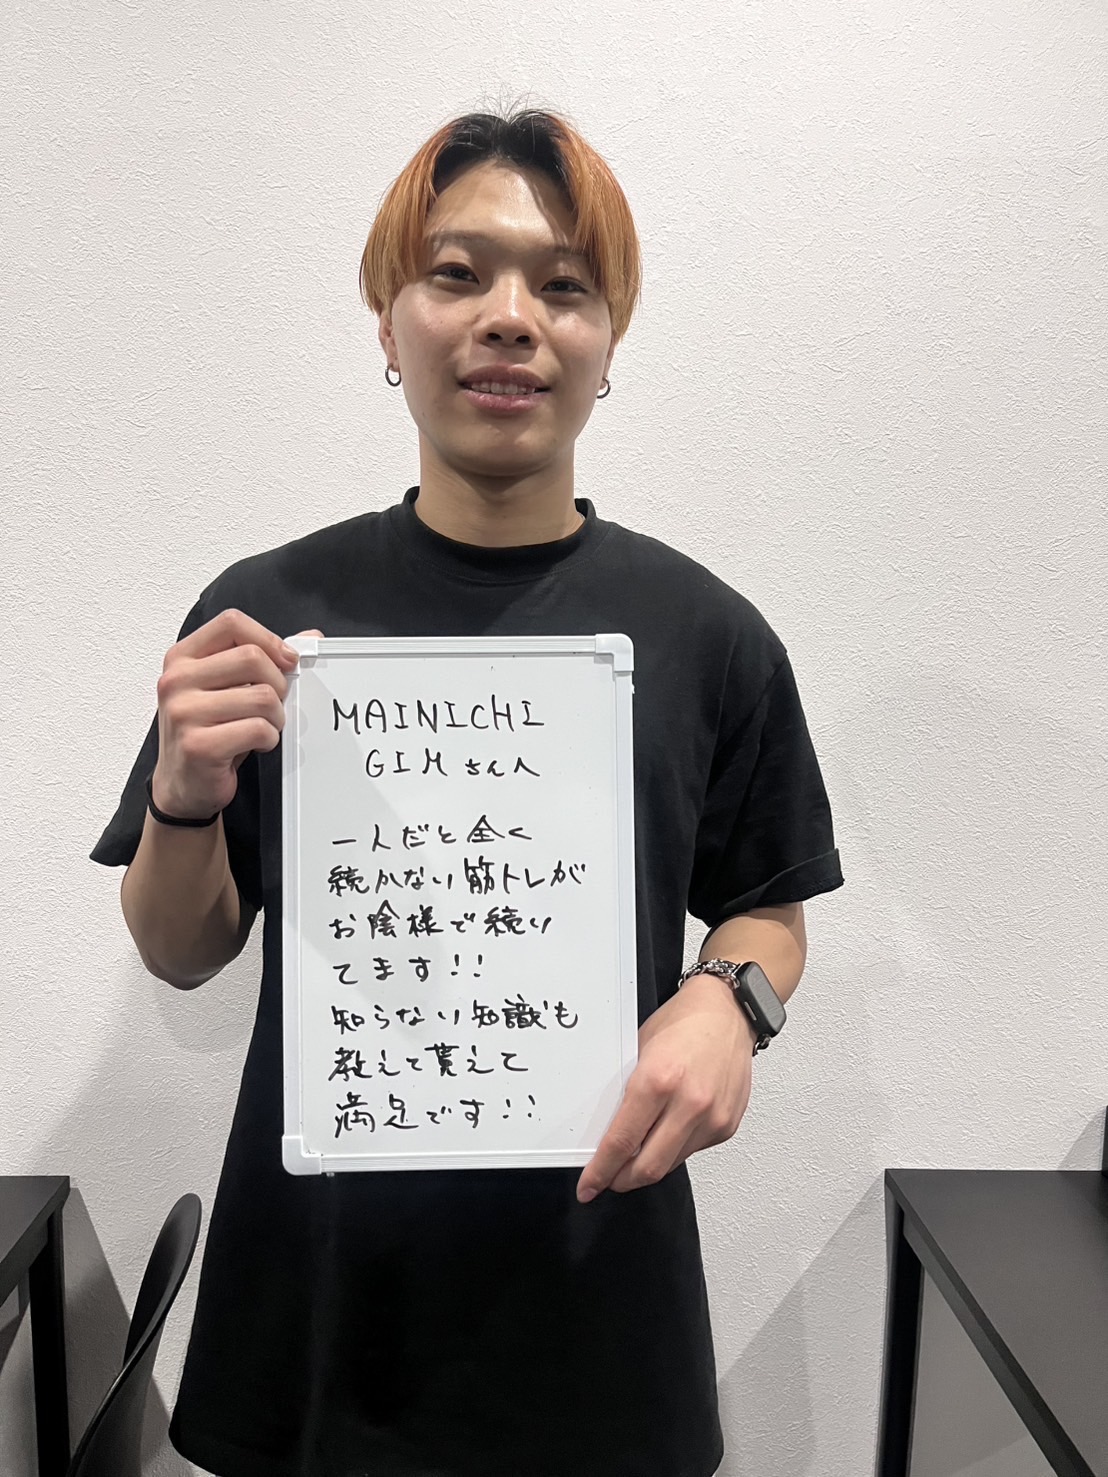 MAINICHI
GIMさんへ
一人だと全く
続かない筋トレが
お陰様で続い
てます!!
知らない知識も
教えて貰えて
満足です!!